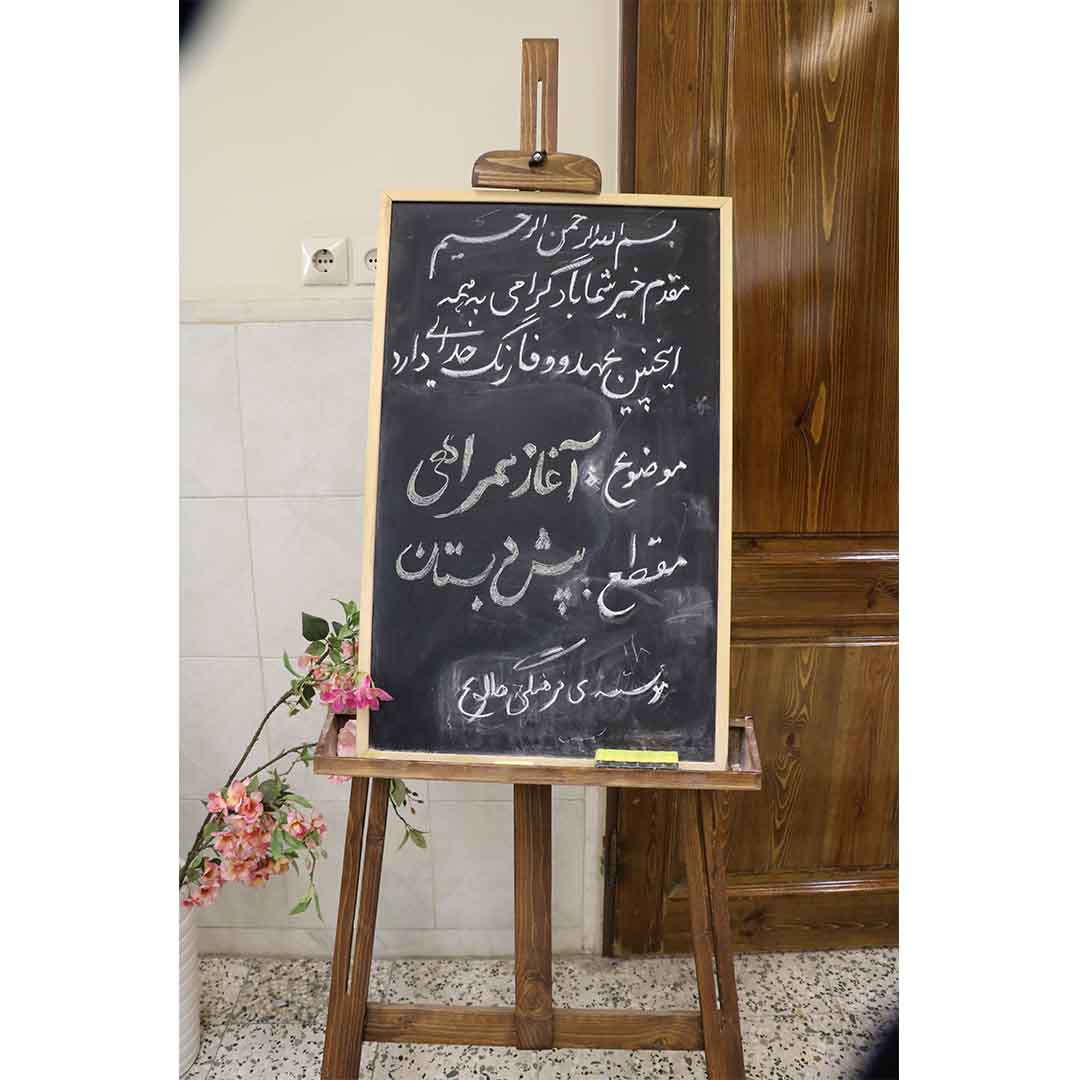 بسم الله الرحمن الرحیم
مقدم خیر شما باد گرامی به همه
اینچنین عهد و وفا رنگ خدایی دارد
موضوع: آغاز همراهی
مقطع: پیش دبستان
موسسه ی فرهنگی طلوع